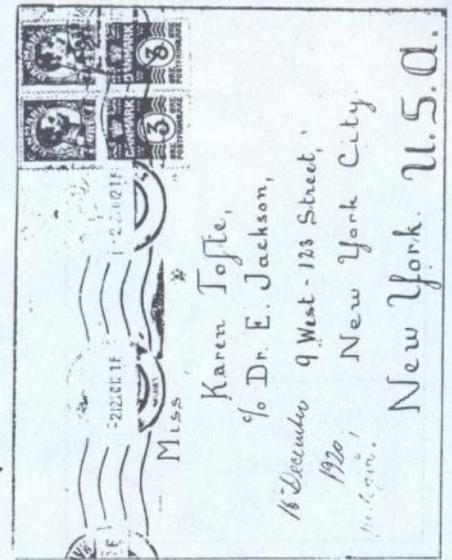 DANMARK DANMARK
3 8
Miss
Karen Tofte,
c/o Dr. E. Jackson,
9 West - 123 Street,
New York City.
New York. U.S.A.
16 December
1920